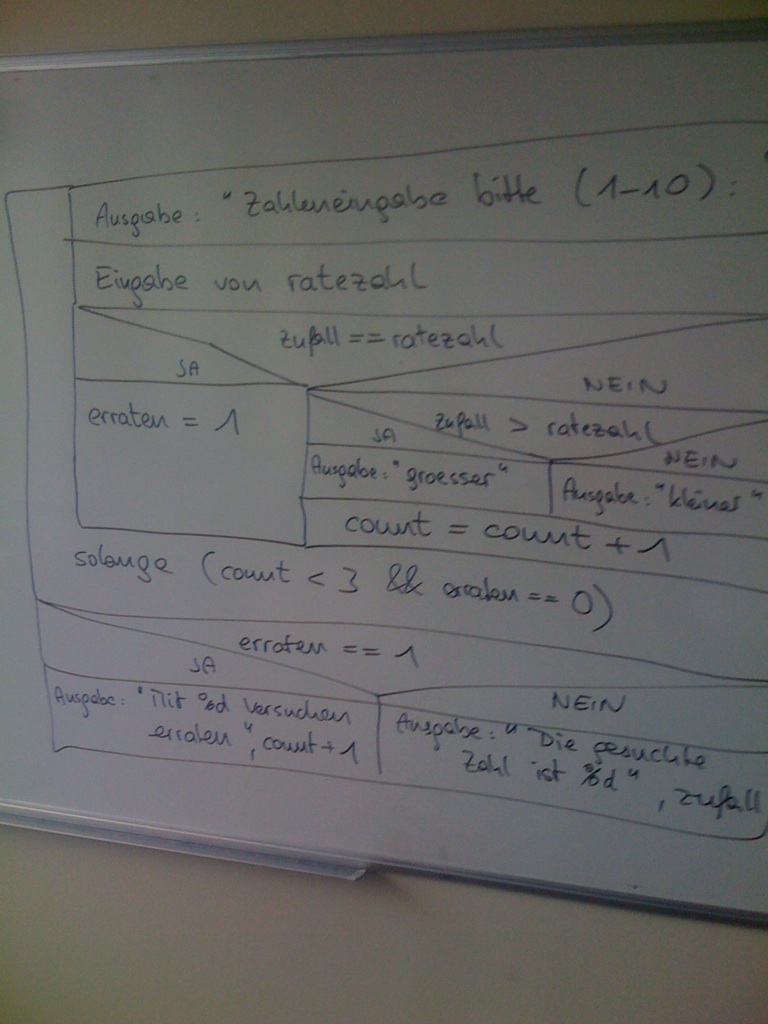 Ausgabe: "Zahleneingabe bitte (1-10): "
Eingabe von ratezahl
zufall == ratezahl
JA
NEIN
erraten = 1
zufall > ratezahl
JA
NEIN
Ausgabe: "groesser"
Ausgabe: "kleiner"
count = count + 1
solange (count < 3 && erraten == 0)
erraten == 1
JA
NEIN
Ausgabe: "Mit %d Versuchen
erraten", count + 1
Ausgabe: "Die gesuchte
Zahl ist %d", zufall